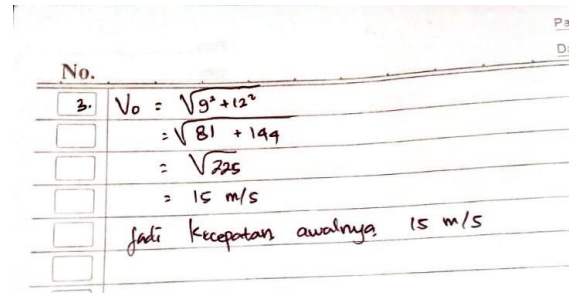 Pa
Da
No.
3. Vo = √9²+12²
= √81 + 144
= √225
= 15 m/s
Jadi kecepatan awalnya 15 m/s